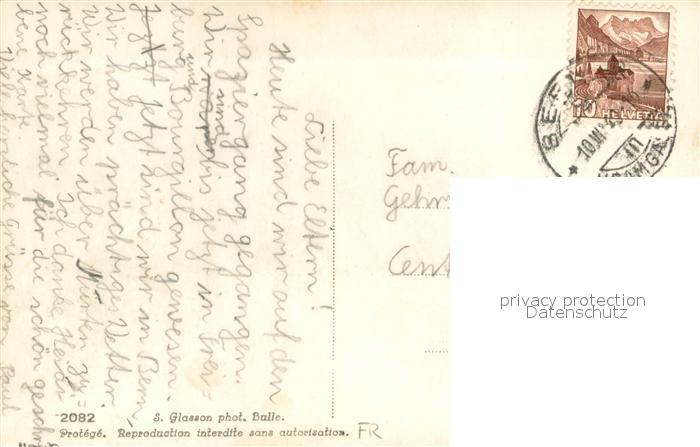 Liebe Eltern!
Heute sind wir auf den
Spaziergang gegangen.
Wir sind bis jetzt in Frei-
burg und Bourguillon gewesen.
Jetzt sind wir in Bern,
Wir haben prächtiges Wetter,
Wir werden über Murten zu-
rückkehren. Ich danke Heidi
noch vielmal für die schön geschrie
bene Karte.
Viele herzliche Grüsse von Paul
Fam.
Gehr
Cent
10
HELVETIA
privacy protection
Datenschutz
2082 S. Glasson phot. Bulle.
Protégé. Reproduction interdite sans autorisation. FR